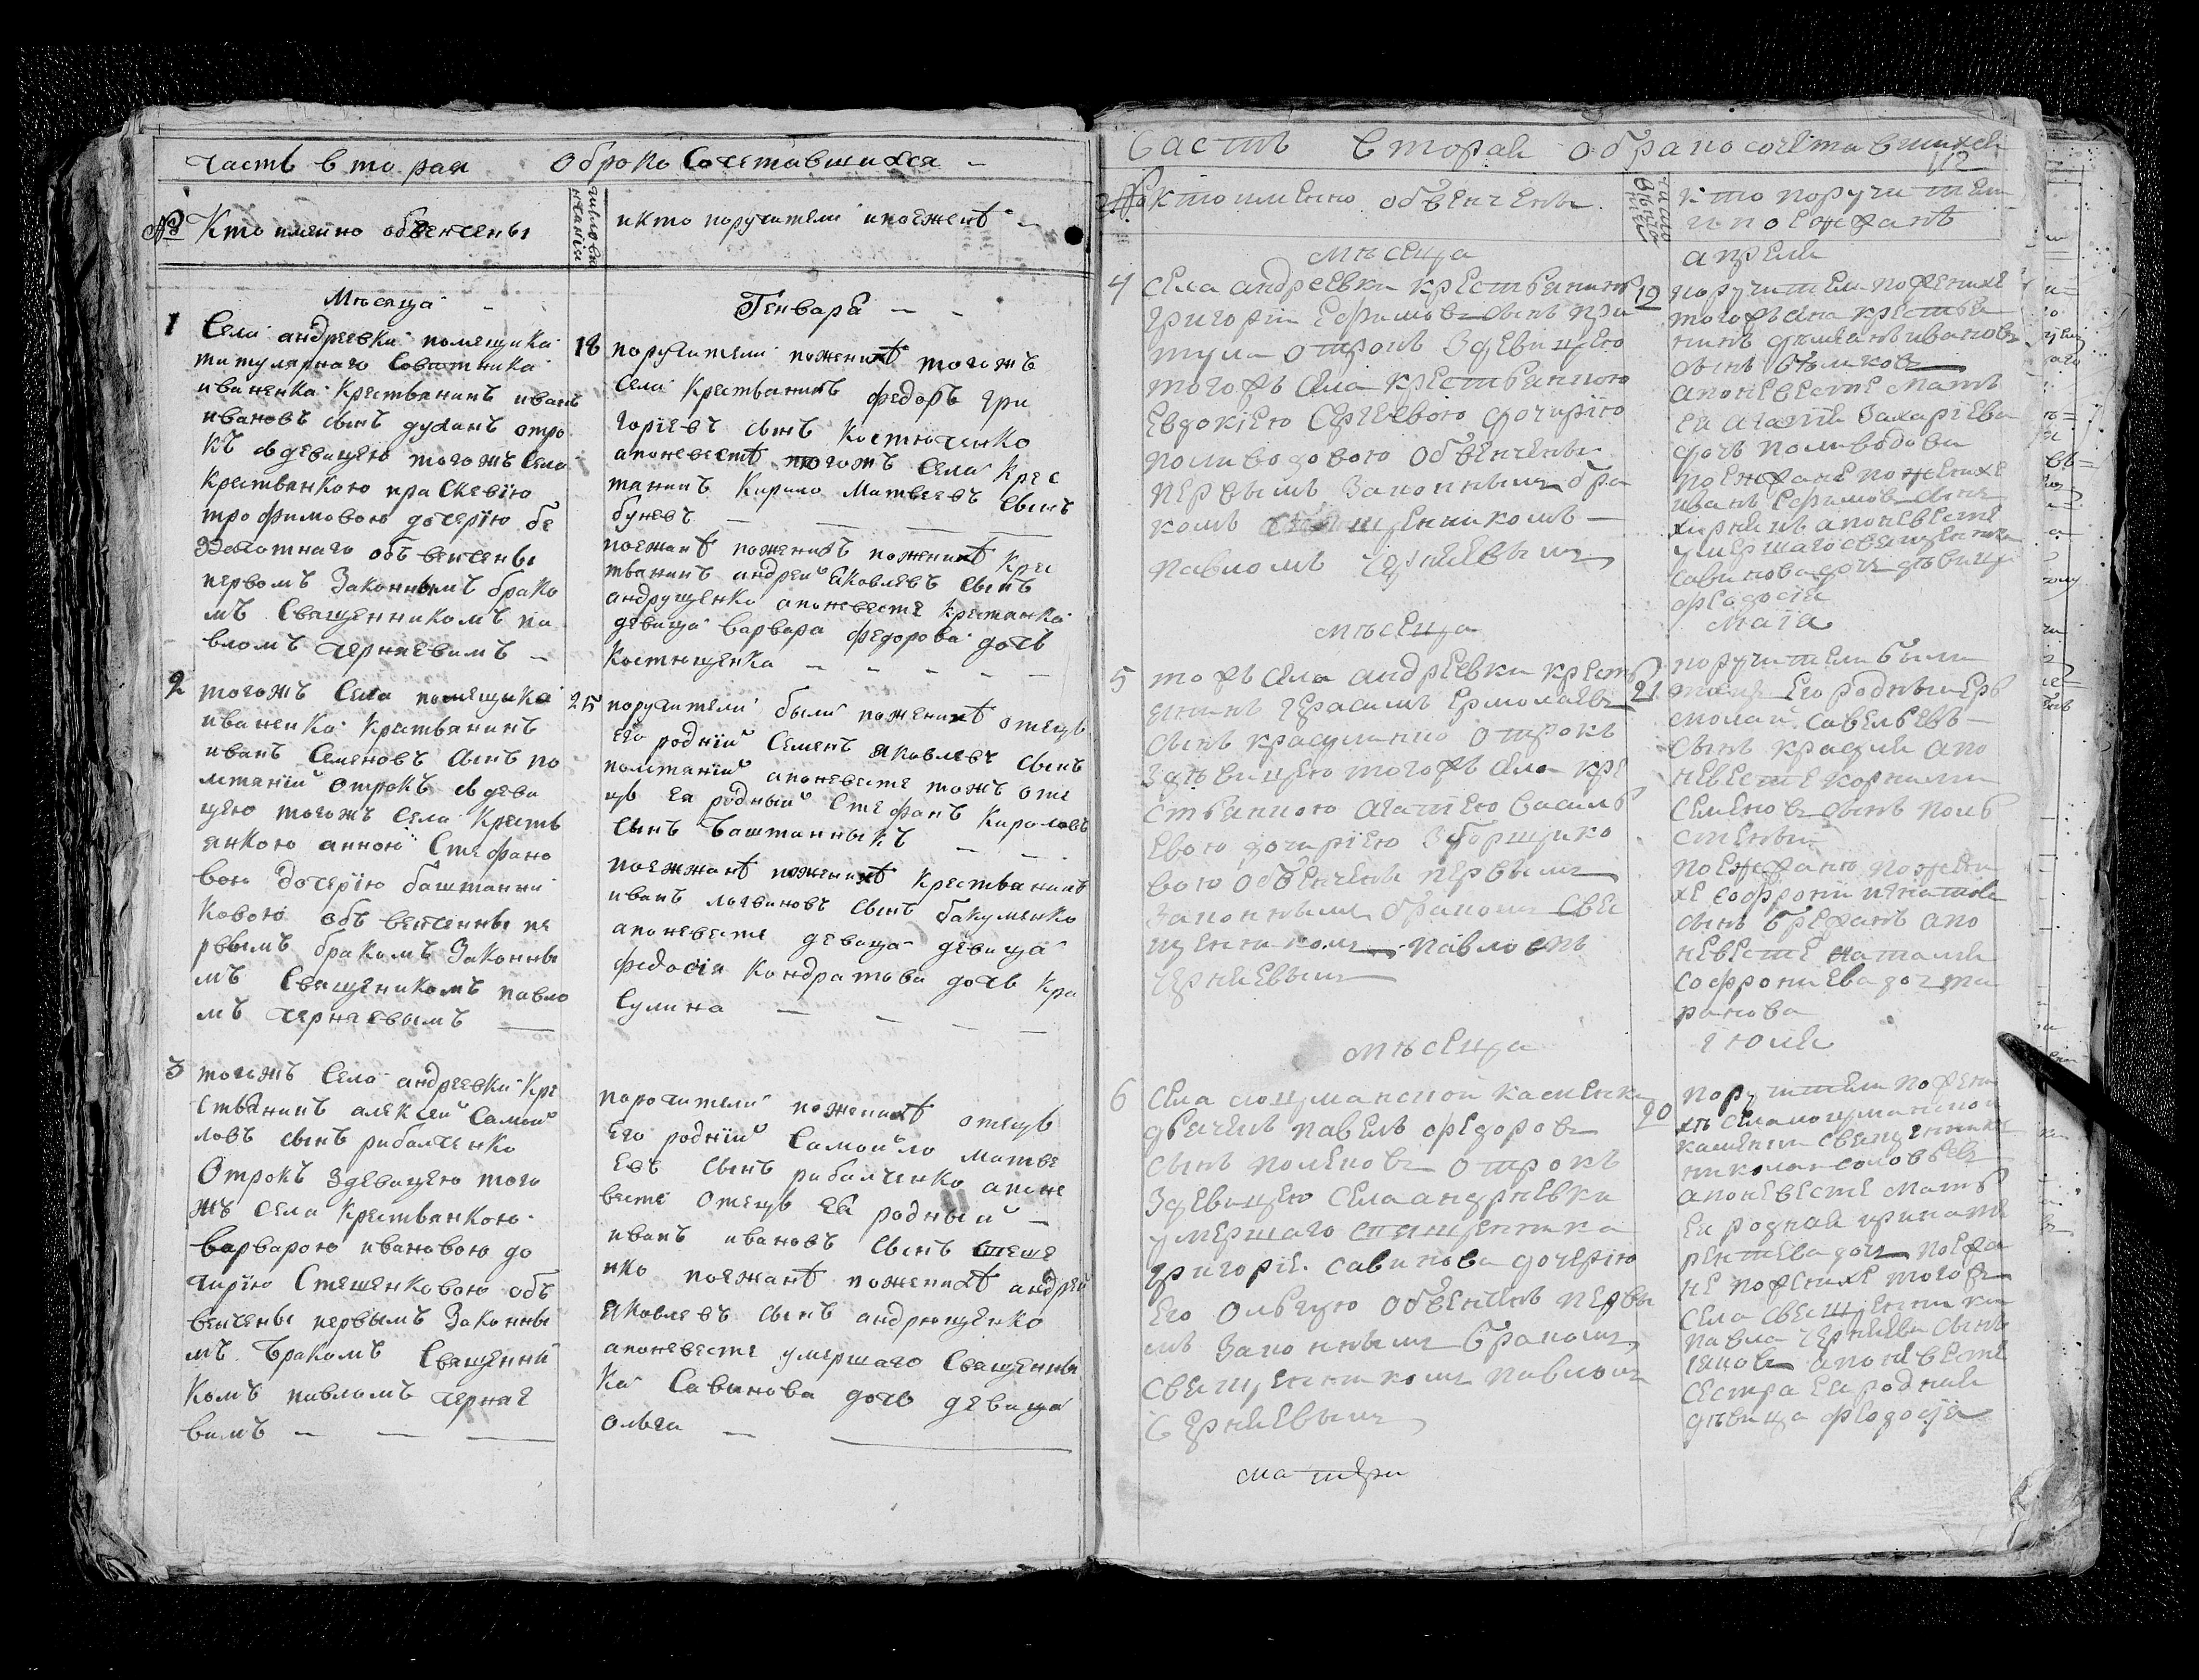 Часть вторая О брако Сочетавшихся
№ Кто имяно обвенчены
число венчанія
и кто поручители и поежжанѣ
Мѣсяца
Генваря
1
Села андреевки помещика
титулярнаго Советника
иваненка Крестьянинъ иванъ
ивановъ сынъ духанъ отро
къ з девицею тогожъ Села
Крестьянкою праскевіею
трофимовою дочерію бе
обвенчены
первомъ Законнымъ брако
мъ Священникомъ па
вломъ черняевимъ
18
поручители по женихѣ тогожъ
села Крестьянинъ федоръ гри
горіевъ сынъ Костюченко
а по невестѣ тогожъ Села Крес
тянинъ Кирило Матвеевъ Сынъ
буневъ
поежанѣ по женихѣ Крес
тянинъ андрей яковлевъ Сынъ
андрущенко а по невесте Крестянка
девица варвара федорова дочь
Костющенка
2
тогожъ Села помещика
иваненка Крестьянинъ
иванъ Семеновъ Сынъ по
лтаній отрокъ з деви
цею тогожъ Села Кресть
янкою анною Стефано
вою дочерію баштанни
ковою обвенченны пе
рвымъ бракомъ Законны
мъ Священикомъ павло
мъ черняевымъ
25
поручители были по женихѣ отецъ
его родній Семенъ яковлевъ сынъ
полтаній а по невесте тожъ оте
цъ ея родный Стефанъ Кириловъ
Сынъ Баштанныкъ
поежжанѣ по женихѣ Крестьянинъ
иванъ логвиновъ Сынъ бакуменко
а по невесте девица девица
федосія Кондратова дочь Кра
Сулина
3
тогожъ Села андреевки Кре
стьянинъ алексей Самой
ловъ сынъ рибалченко
Отрокъ з девицею того
жъ села Крестьянкою
варварою ивановою до
чирію Стешенковою объ
венчены первымъ Законны
мъ Бракомъ Священни
Комъ павломъ черняе
вимъ
поручители по женихѣ отецъ
Его родній Самойло матве
евъ Сынъ рибалченко а по не
вестѣ Отецъ Ея родный
иванъ ивановъ Сынъ Стеше
нко поежанѣ по женихѣ андрей
яковлевъ Сынъ андрющенко
а по невесте умершаго Священни
Ка Савинова дочь девица
Ольга
Часть Вторая о брако сочетавшихся
12
№ кто именно обвенчены
число венчанія
кто поручители
и поежжанѣ
мѣсяца
апреля
4
села андреевки крестьянинъ
григорій Ефимовъ сынъ при
тула отрокъ здевицею
тогожъ села крестьянкою
Евдокіею Сергеевою дочирію
поливодовою обвенчены
первымъ законнымъ бра
комъ священникомъ
павломъ черняевымъ
19
поручители по женихе
тогожъ села крестья
нинъ демянъ ивановъ
сынъ
а по невесте мать
ея агафія захаріева
дочъ поливодова
поежжане по женихе
иванъ Ефимовъ сынъ
а по невесте
умершаго священника
савинова дочъ девица
феодосія
мѣсяца
маія
5
тожъ села андреевки крест
янинъ герасимъ Ермолаевъ
сынъ отрокъ
здевицею тогожъ села кре
стьянкою агафіею василь
евою дочиріею зборщико
вою обвенчены первымъ
законнымъ бракомъ свя
щенникомъ павломъ
черняевымъ
21
поручители были
его родный ерь
молай савельевъ
сынъ а по
невесте корнилий
семеновъ сынъ
поежжаню по жени
хе софроній игнатовъ
сынъ а по
невесте наталия
софрониева доч та
ранова
мѣсяца
іюля
6
села каменки
дьячекъ павелъ федоровъ
сынъ поленовъ отрокъ
здевицею села андреевки
умершаго священника
григорія савинова дочерію
его ольгую обвенчанъ первы
мъ законнымъ бракомъ
священникомъ павломъ
Черняевымъ
20
поручители по жени
хѣ села
каменки священникъ
николай соловьевъ
а по невесте мать
ея родная
дочъ поежа
не по женихе тогожъ
села священника
павла черняева сынъ
яковъ а по невесте
сестра ея родная
дѣвица феодосія
матери